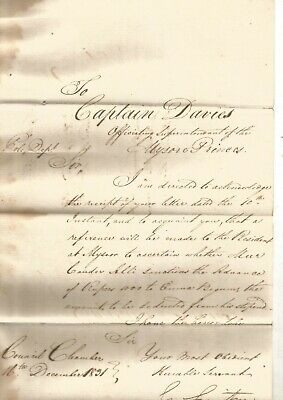 To
Captain Davies
Officiating Superintendent of the
Mysore Princes
Pol. Dept.
Sir,
I am directed to acknowledge
the receipt of your letter dated the 10th
Instant, and to acquaint you, that a
reference will be made to the Resident
at Mysore to ascertain whether Meer
Alli sanctions the Advance
of Rupees to Begum that
amount to be deducted from his stipend.
I have the honor to be
Sir
Your Most Obedient
Humble Servant
Council Chamber
16th December 1831